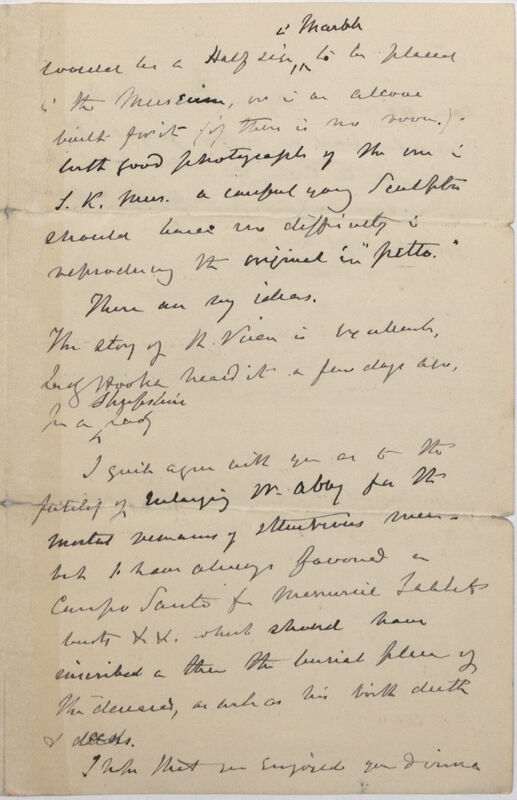 in Marble
would be a Half size, to be placed
in the Museum, or in an alcove
built for it (if there is no room).
with good photographs of the one in
S. K. Mus. a careful young Sculptor
should have no difficulty in
reproducing the original in "petto."
These are my ideas.
The story of the is excellent,
Lady Hooker heard it a few days ago,
Shropshire
from a Lady
I quite agree with you as to the
futility of enlarging W. Abbey for the
mortal remains of illustrious men –
but I have always favoured a
Campo Santo for Memorial Tablets
busts &c. which should have
inscribed on them the burial place of
the deceased, as well as his birth death
& deeds.
I hope that you enjoyed your